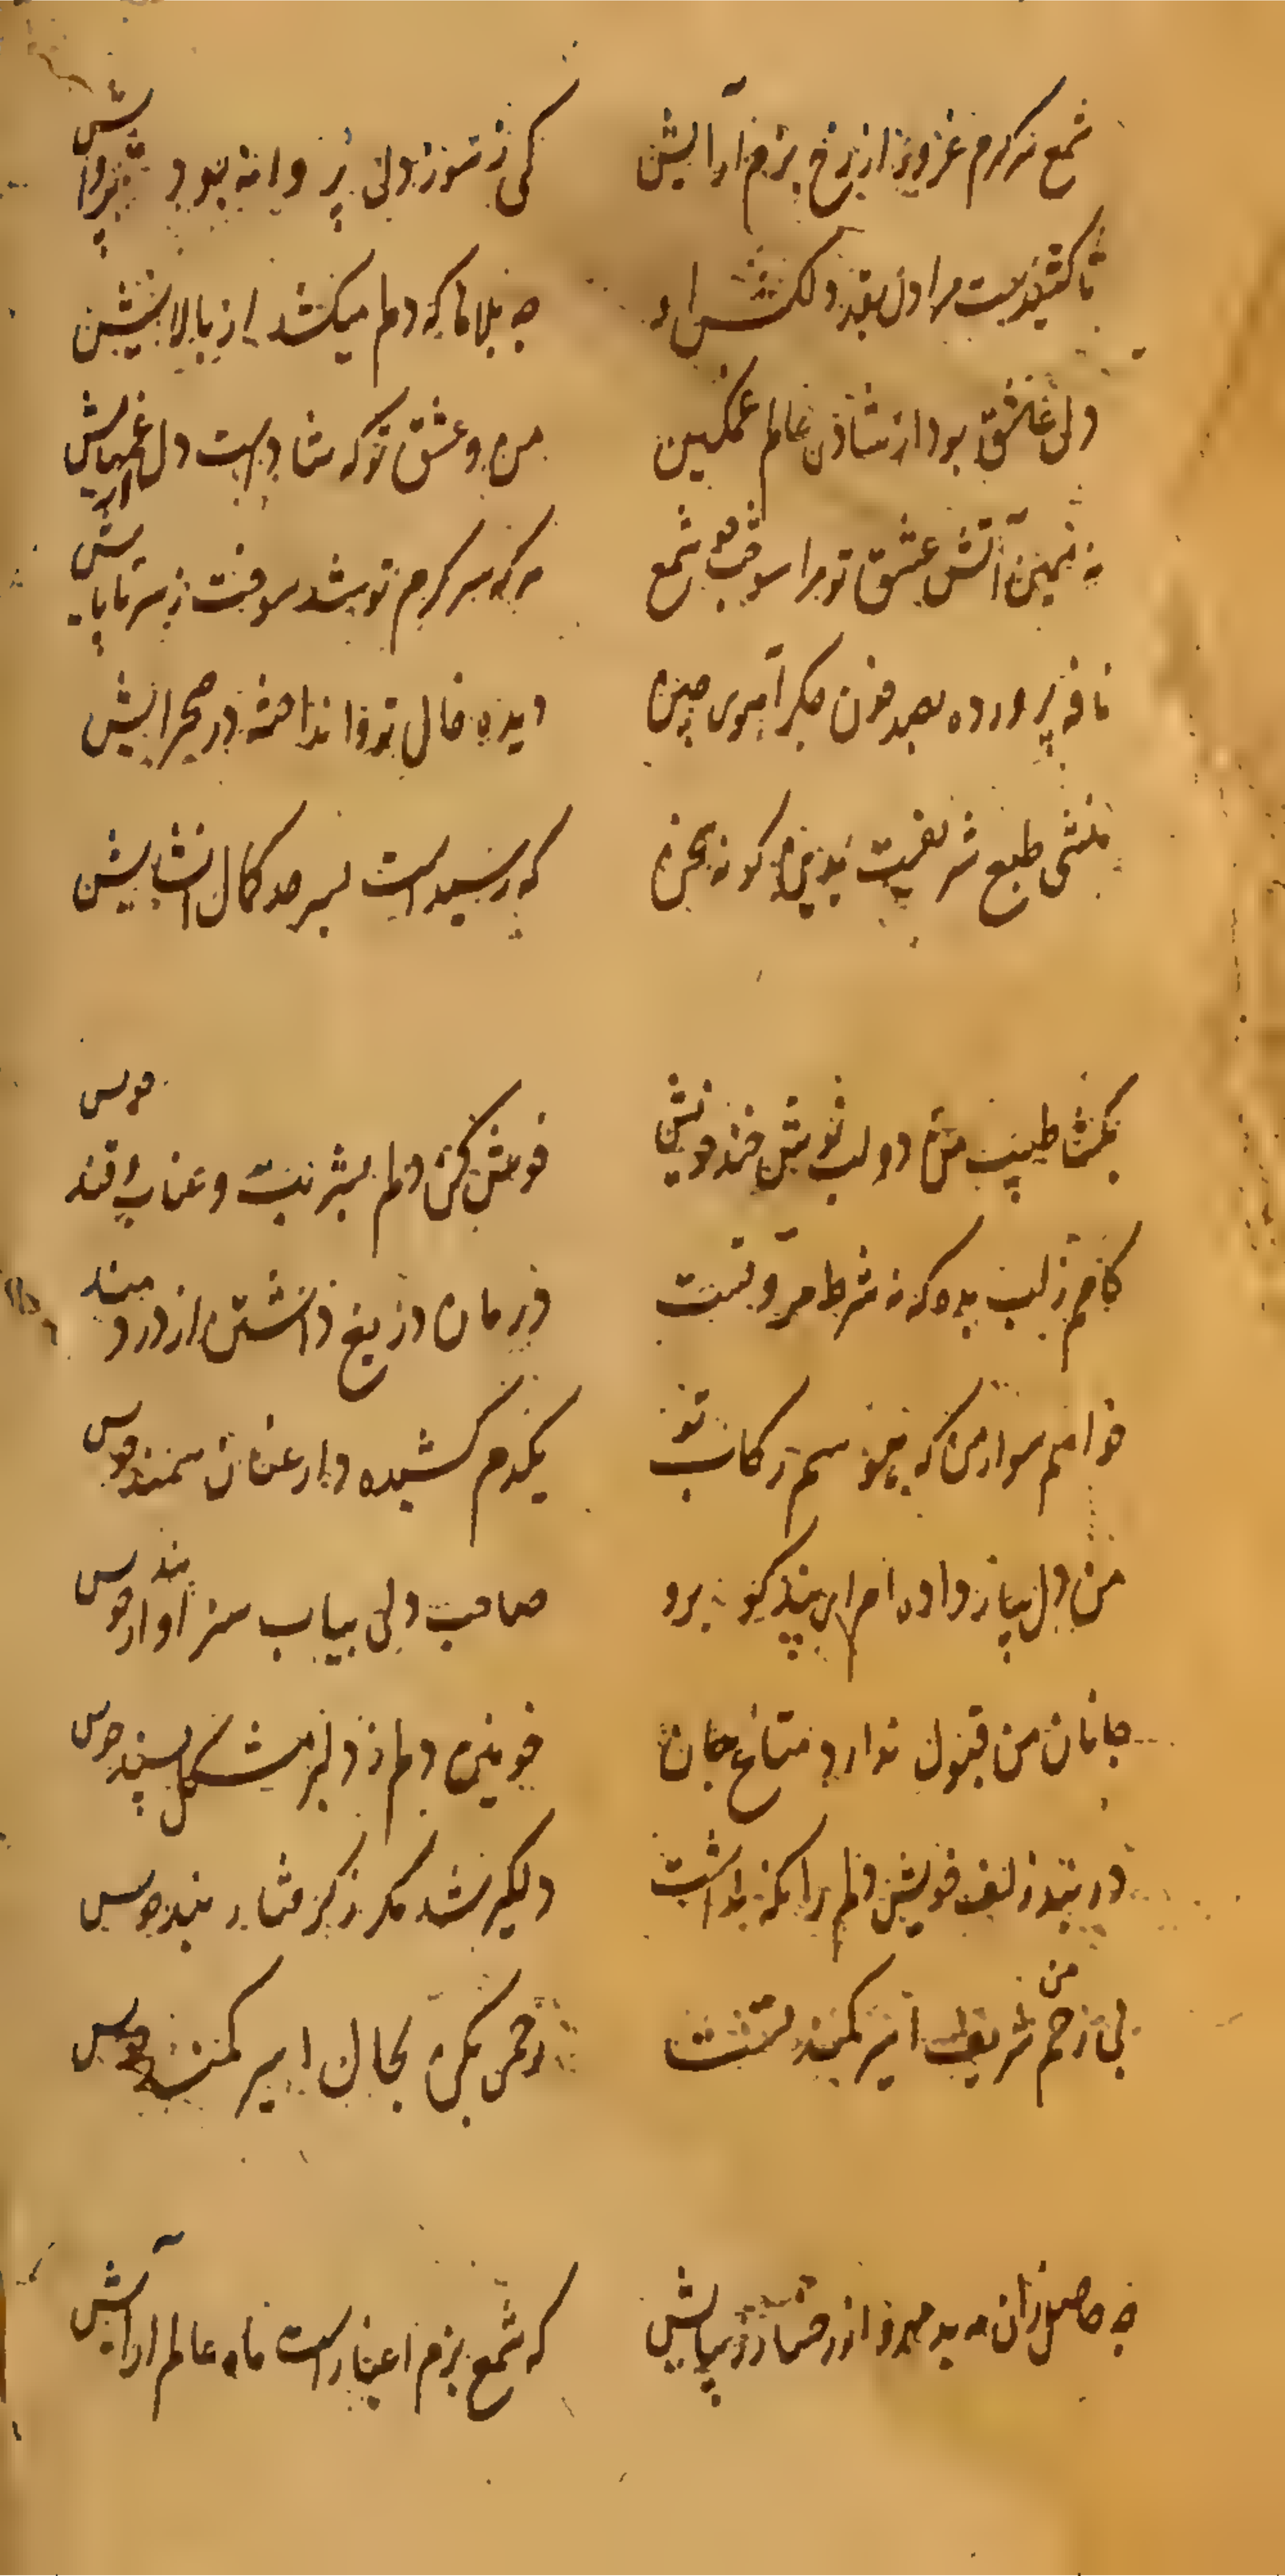 شمع سرکرم غرور از رخ بزم آرایش
کی ز سوز دل پروانه بود پروایش
تا کشیدست مرا دل بقد دلکش او
چه بلاها که دلم میکشد از بالایش
دل عاشق بود از شادی عالم غمکین
من و عشق تو که شادست دل از غمهایش
نه همین آتش عشق تو مرا سوخت چو شمع
هر که سرکرم تو شد سوخت ز سر تا پایش
نافه پرورده بصد خون جکر آهوی چین
دیده خال تو و انداخته در صحرایش
منشی طبع شریفست بدین کونه سخن
که رسیدست بسر حد کمال انشایش
بکشا طبیب من دو لب نوش خند خویش
خوش کن دلم بشربت عناب و قند خویش
کامم ز لب بده که نه شرط مروتست
درمان دریغ داشتن از دردمند خویش
خواهم سوار من که ببوسم رکاب تو
یکدم کشیده دار عنان سمند خویش
من دل بیار داده ام ای پند کو برو
صاحب دلی بیاب سزاوار پند خویش
جانان من قبول ندارد متاع جان
خونین دلم ز دلبر مشکل پسند خویش
در بند زلف خویش دلم را نکه نداشت
دلکیر شد مکر ز کرفتار بند خویش
بی رحم من شریف اسیر کمند تست
رحمی بکن بحال اسیر کمند خویش
چه حاصل زان مه بدمهر و از رخسار زیبایش
که شمع بزم اغیارست ماه عالم آرایش